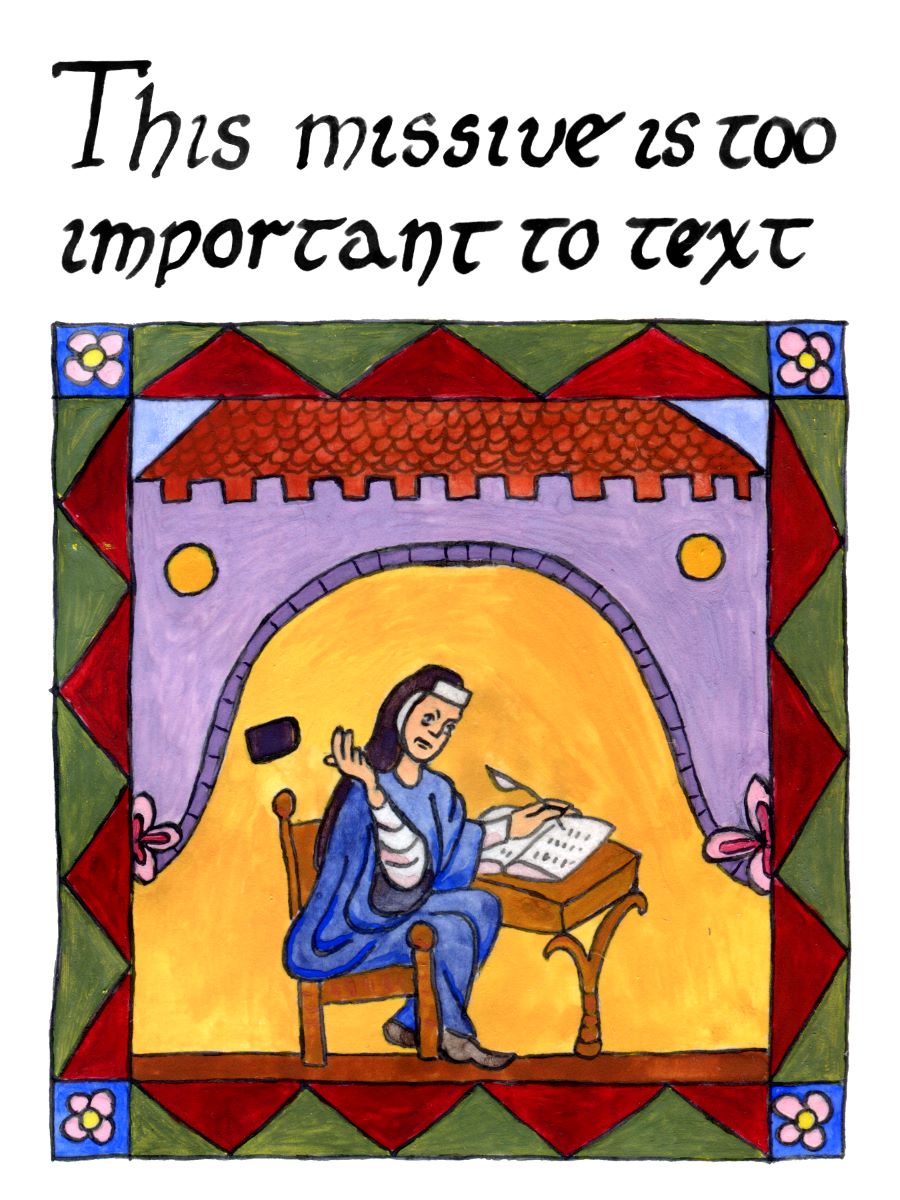 This missive is too
important to text